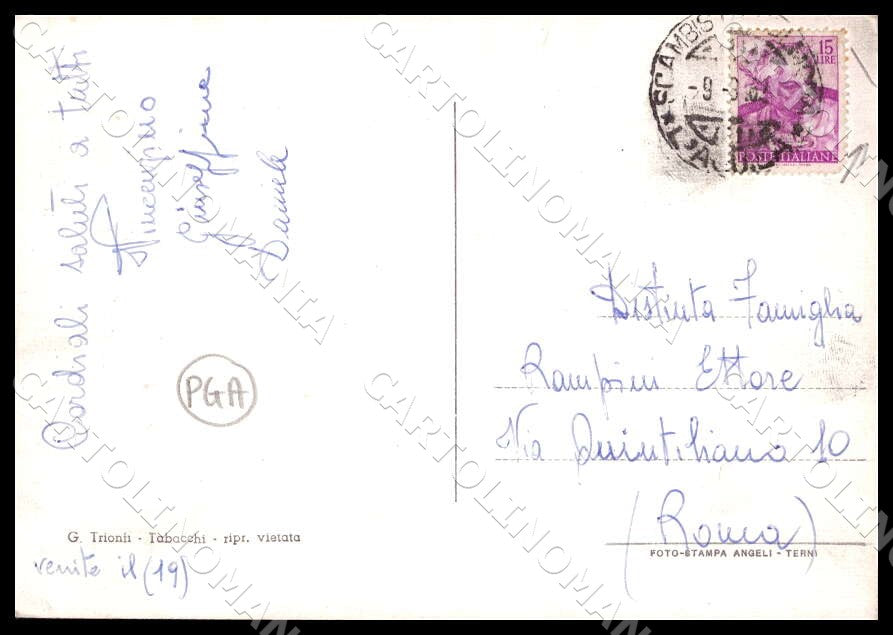 Cordiali saluti a tutti
Vincenzino
Giuseffina
Daniele
PGA
G. Trionfi - Tabacchi - ripr. vietata
venite il (19)
SCAMBIS
L'AQUILA
-9-
15
LIRE
POSTE ITALIANE
Distinta Famiglia
Rampini Ettore
Via Quintiliano 10
(Roma)
FOTO-STAMPA ANGELI - TERNI
CARTOLINOMANIA